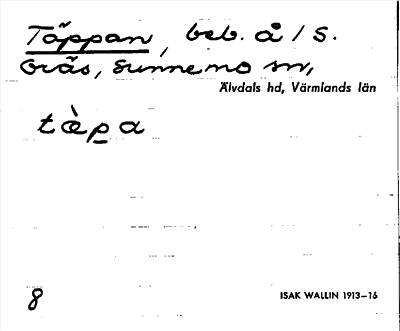 Täppan, beb. å / S.
Gräs, Sunnemo sn,
Älvdals hd, Värmlands län
tὰpa
8
ISAK WALLIN 1913–16